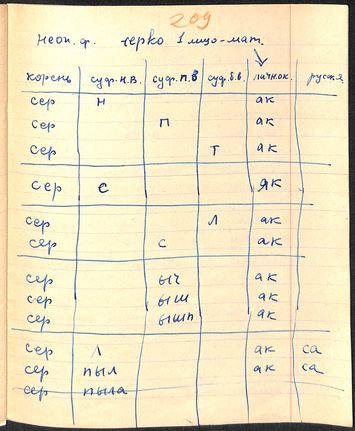 209
неоп. ф. серко 1 лицо-мат.
корень суф. н.в. суф. п.в суф. б.в. личн.ок. рус.яз.
сер н ак
сер п ак
сер т ак
сер с як
сер л ак
сер с ак
сер ыч ак
сер ыш ак
сер ышп ак
сер л ак са
сер пыл ак са
сер пыла